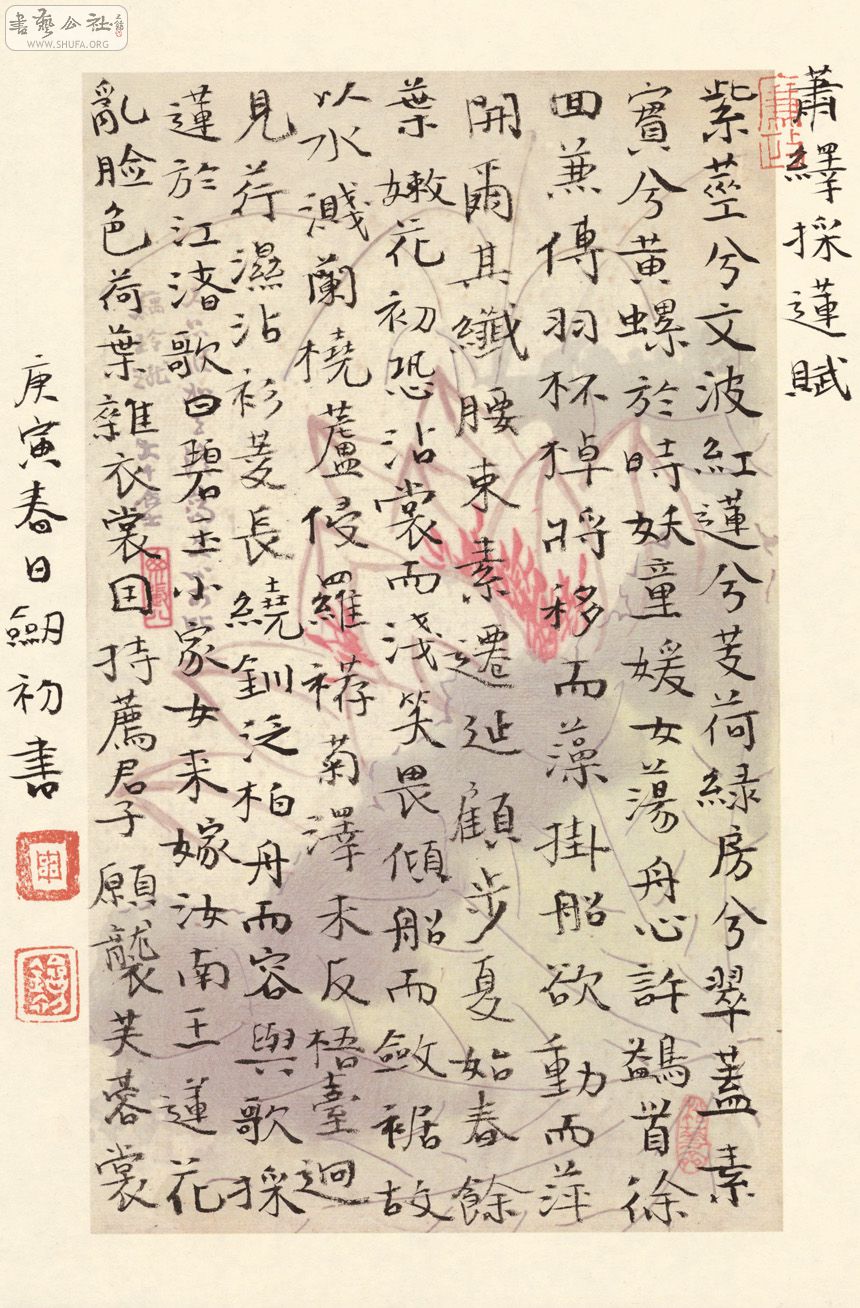 書藝公社
WWW.SHUFA.ORG
蕭繹採蓮賦
紫莖兮文波紅蓮兮芰荷綠房兮翠蓋素
實兮黃螺於時妖童媛女蕩舟心許鷁首徐
回兼傳羽杯棹將移而藻掛船欲動而萍
開爾其纖腰束素遷延顧步夏始春餘
葉嫩花初恐沾裳而淺笑畏傾船而斂裾故
以水濺蘭橈蘆侵羅襪菊澤未反梧臺迥
見荇濕沾衫菱長繞釧泛柏舟而容與歌採
蓮於江渚歌曰碧玉小家女来嫁汝南王蓮花
亂臉色荷葉雜衣裳因持薦君子願襲芙蓉裳
庚寅春日劒初書